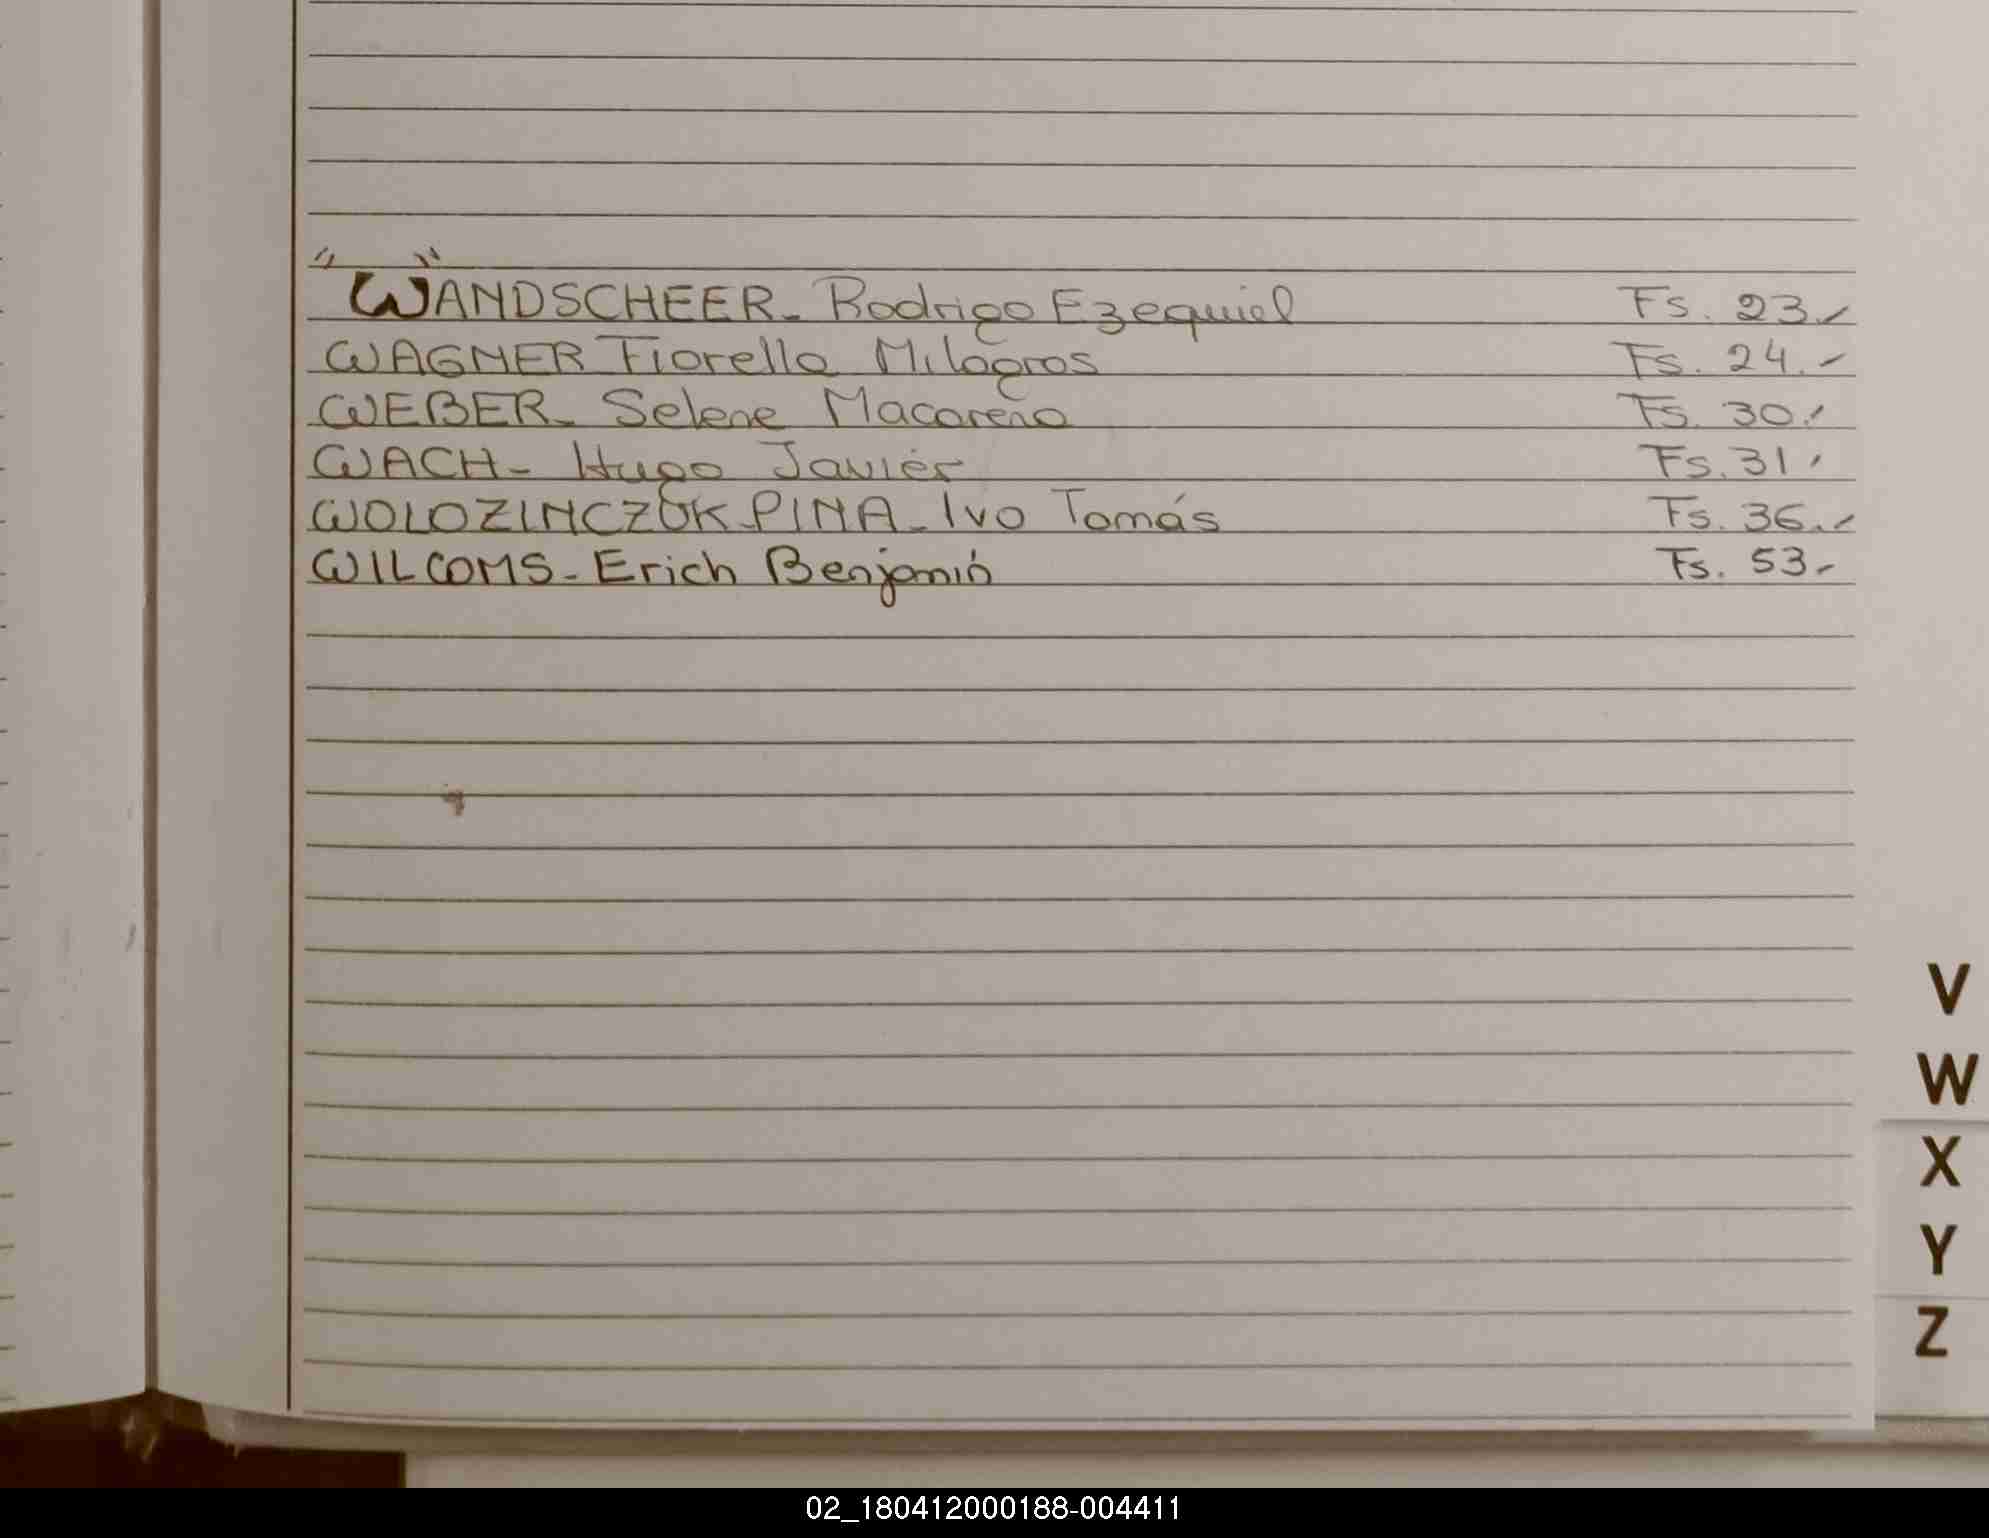 "WANDSCHEER- Rodrigo Ezequiel Fs. 23.-
WAGNER Fiorella Milagros Fs. 24.-
WEBER- Selene Macarena Fs. 30.-
WACH- Hugo Javier Fs. 31.
WOLOZINCZUK PINA- Ivo Tomás Fs. 36.-
WILCOMS- Erich Benjamín Fs. 53.-
V
W
X
Y
Z
02_180412000188-004411